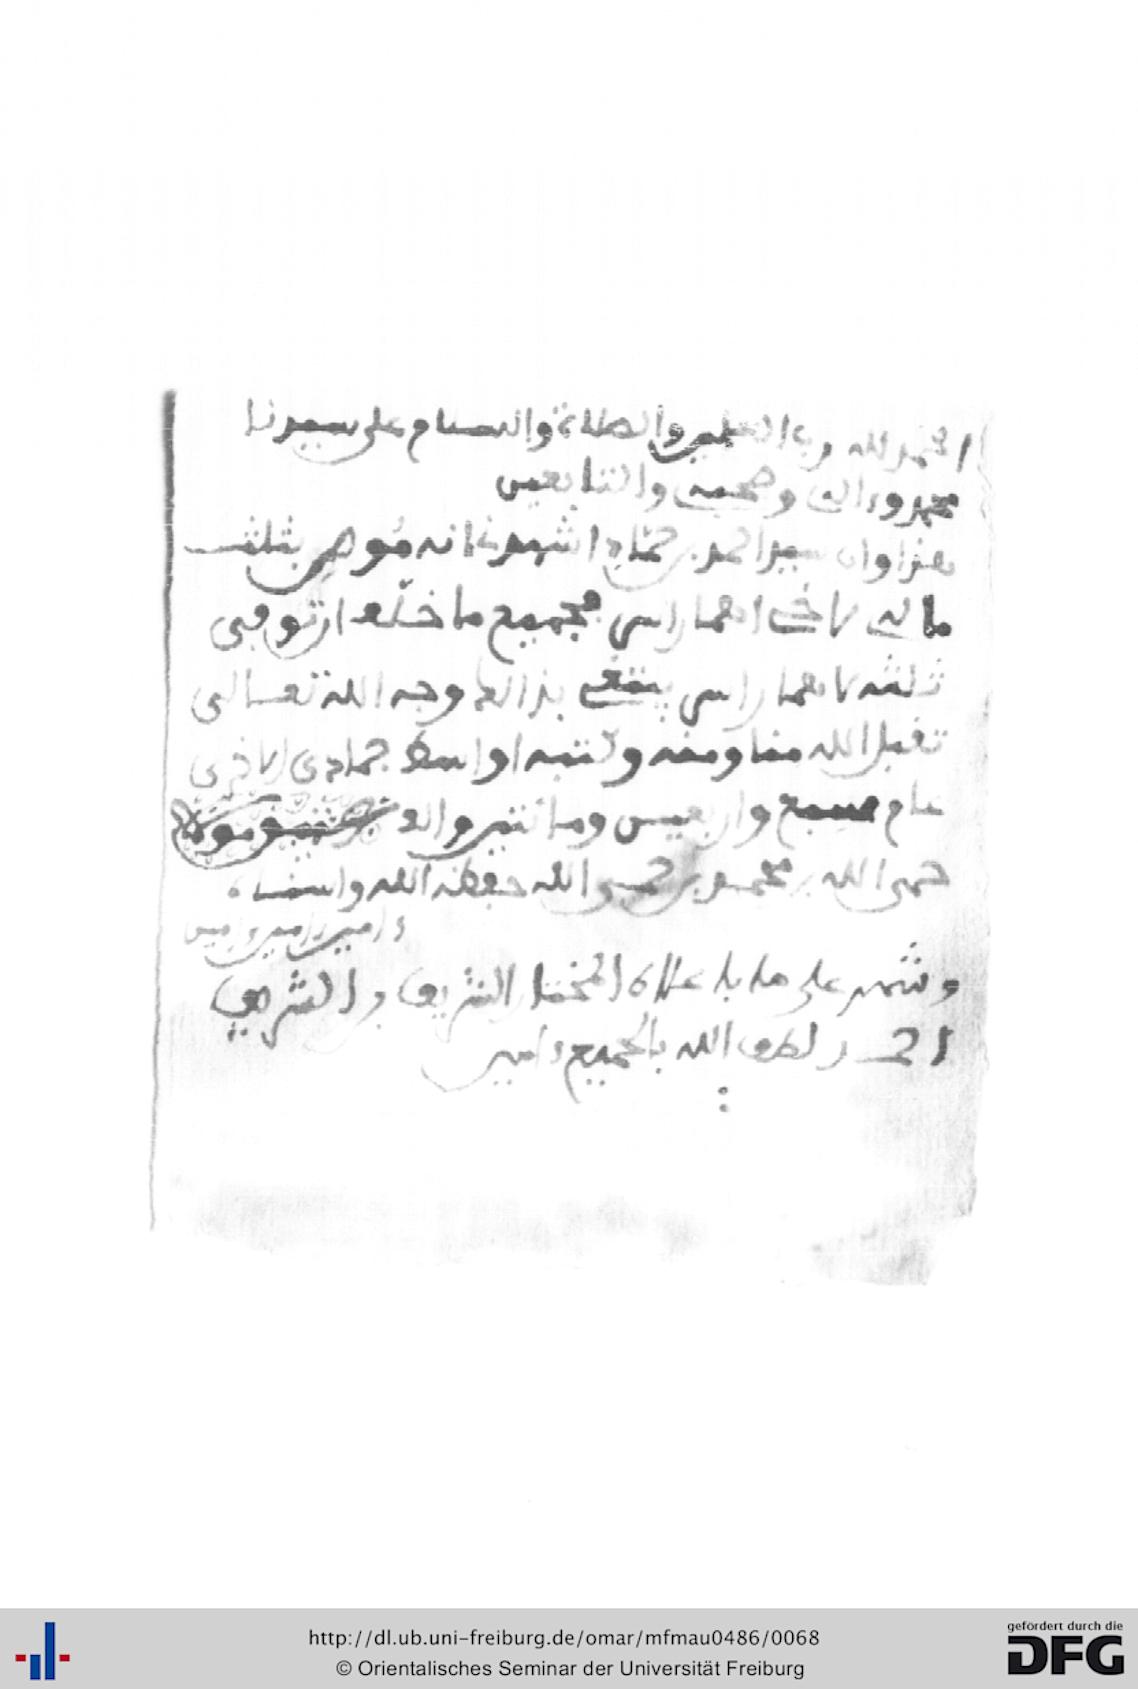 الحمد لله رب العلمين والصلاة والسلام على سيدنا
محمد وءاله وصحبه والتابعين
هذا وان سيد احمد بن حماد اشهدنا انه موص بثلث
ماله لأخيه اهما راسي بجميع ما خلف ان توفي
ثلثه لاهما راسي يبتغي بذالك وجه الله تعالى
تقبل الله منا ومنه وكتبه اواسط جمادى الاخرى
عام سبع واربعين ومائتين والف
حمى الله بن محمد بن حمى الله حفظه الله
ءامين ءامين ءامين
وشهد على ما بأعلاه المختار الشريف بن الشريف
احمد لطف الله بالجميع ءامين
http://dl.ub.uni-freiburg.de/omar/mfmau0486/0068
© Orientalisches Seminar der Universität Freiburg
gefördert durch die
DFG